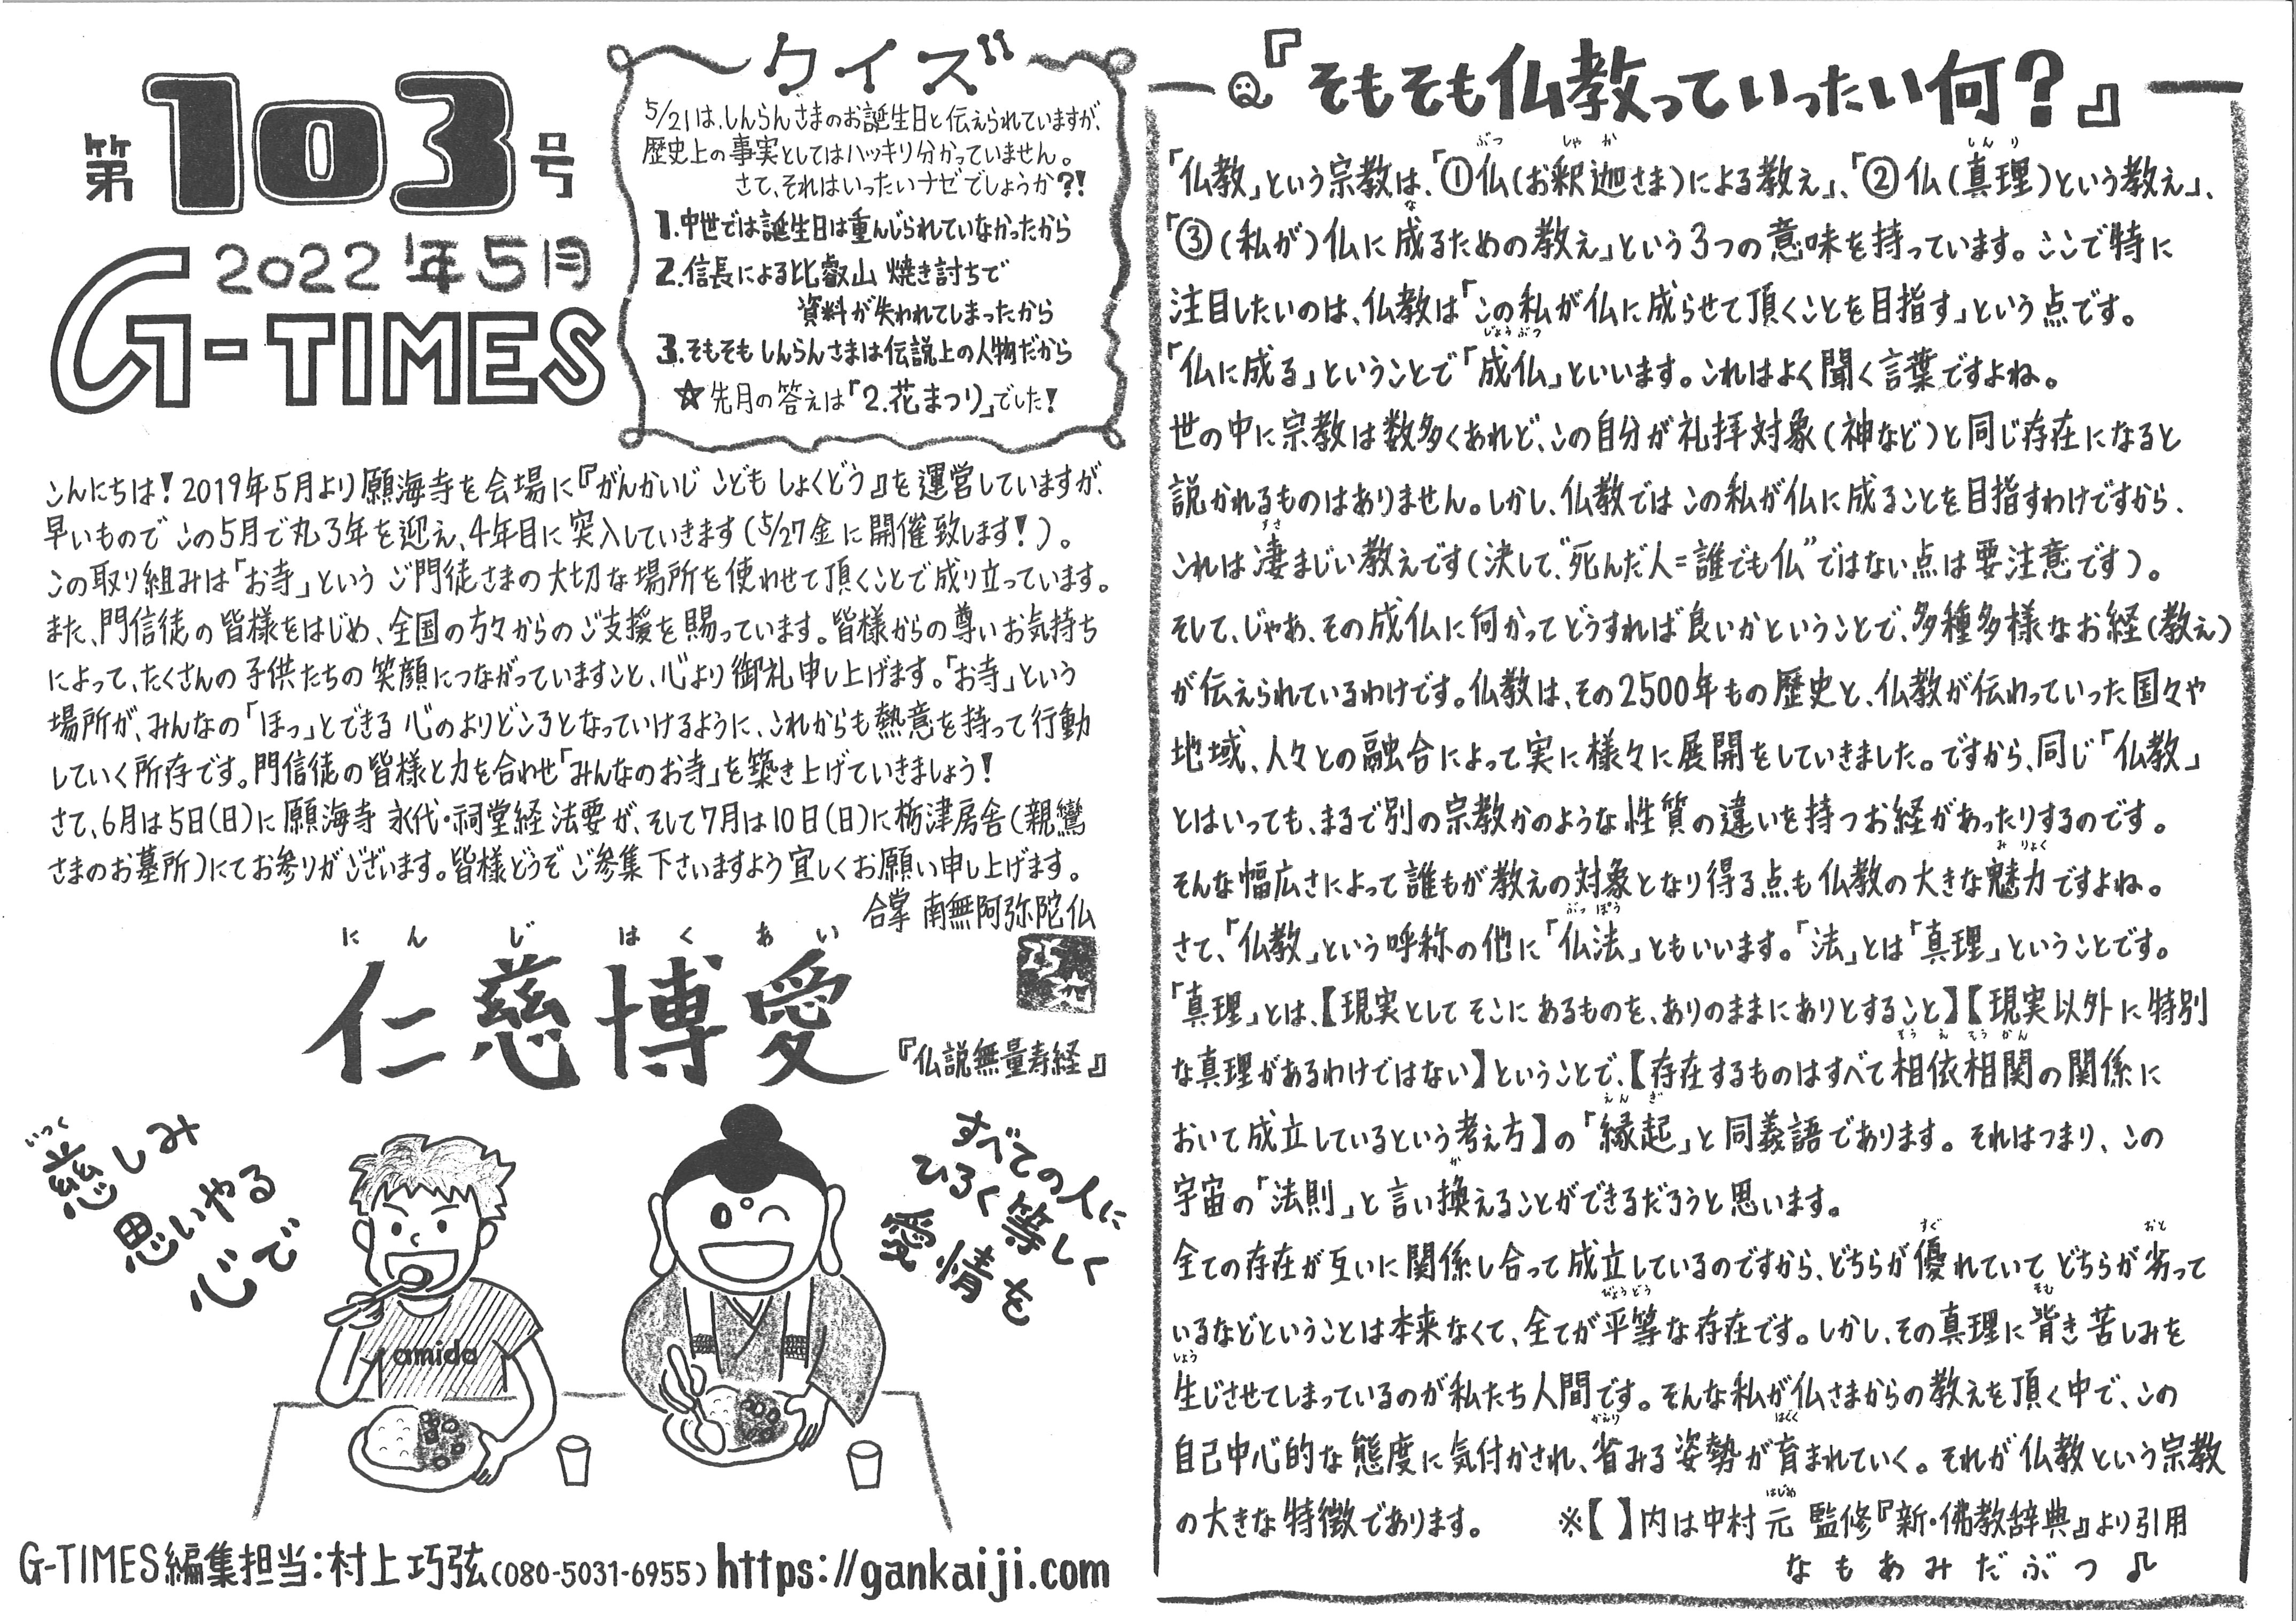 第103号
2022年5月
G-TIMES
クイズ
5/21は、しんらんさまのお誕生日と伝えられていますが、
歴史上の事実としてはハッキリ分かっていません。
さて、それはいったいナゼでしょうか?!
1.中世では誕生日は重んじられていなかったから
2.信長による比叡山焼き討ちで
資料が失われてしまったから
3.そもそもしんらんさまは伝説上の人物だから
☆先月の答えは「2.花まつり」でした!
こんにちは!2019年5月より願海寺を会場に『がんかいじ こども しょくどう』を運営していますが、
早いもので この5月で丸3年を迎え、4年目に突入していきます(5/27金に開催致します!)。
この取り組みは「お寺」という ご門徒さまの大切な場所を使わせて頂くことで成り立っています。
また、門信徒の皆様をはじめ、全国の方々からのご支援を賜っています。皆様からの尊いお気持ち
によって、たくさんの子供たちの笑顔につながっていますこと、心より御礼申し上げます。「お寺」という
場所が、みんなの「ほっ」とできる 心のよりどころとなっていけるように、これからも熱意を持って行動
していく所存です。門信徒の皆様と力を合わせ「みんなのお寺」を築き上げていきましょう!
さて、6月は5日(日)に願海寺 永代・祠堂経 法要が、そして7月は10日(日)に栃津房舎(親鸞
さまのお墓所)にてお参りがございます。皆様どうぞ ご参集下さいますよう宜しくお願い申し上げます。
合掌 南無阿弥陀仏
にんじはくあい
仁慈博愛
『仏説無量寿経』
いつく
慈しみ
思いやる
心で
すべての人に
ひろく等しく
愛情を
amida
G-TIMES編集担当:村上巧弦(080-5031-6955) https://gankaiji.com
『そもそも仏教っていったい何?』
ぶっ しゃか しんり
「仏教」という宗教は、「①仏(お釈迦さま)による教え」、「②仏(真理)という教え」、
な
「③(私が)仏に成るための教え」という3つの意味を持っています。ここで特に
注目したいのは、仏教は「この私が仏に成らせて頂くことを目指す」という点です。
じょうぶつ
「仏に成る」ということで「成仏」といいます。これはよく聞く言葉ですよね。
世の中に宗教は数多くあれど、この自分が礼拝対象(神など)と同じ存在になると
説かれるものはありません。しかし、仏教では この私が仏に成ることを目指すわけですから、
すさ
これは凄まじい教えです(決して、“死んだ人=誰でも仏”ではない点は要注意です)。
そして、じゃあ、その成仏に何かってどうすれば良いかということで、多種多様なお経(教え)
が伝えられているわけです。仏教は、その2500年もの歴史と、仏教が伝わっていった国々や
地域、人々との融合によって実に様々に展開をしていきました。ですから、同じ「仏教」
とはいっても、まるで別の宗教かのような性質の違いを持つお経があったりするのです。
みりょく
そんな幅広さによって誰もが教えの対象となり得る点も仏教の大きな魅力ですよね。
ぶっぽう
さて、「仏教」という呼称の他に「仏法」ともいいます。「法」とは「真理」ということです。
「真理」とは、【現実として そこに あるものを、ありのままにありとすること】【現実以外に特別
そうえそうかん
な真理があるわけではない】ということで、【存在するものはすべて相依相関の関係に
えんぎ
おいて成立しているという考え方】の「縁起」と同義語であります。それはつまり、この
か
宇宙の「法則」と言い換えることができるだろうと思います。
すぐ おと
全ての存在が互いに関係し合って成立しているのですから、どちらが優れていて どちらが劣って
びょうどう そむ
いるなどということは本来なくて、全てが平等な存在です。しかし、その真理に背き苦しみを
しょう
生じさせてしまっているのが私たち人間です。そんな私が仏さまからの教えを頂く中で、この
かえり はぐく
自己中心的な態度に気付かされ、省みる姿勢が育まれていく。それが仏教という宗教
はじめ
の大きな特徴であります。 ※【 】内は中村 元 監修『新・佛教辞典』より引用
なもあみだぶつ♫